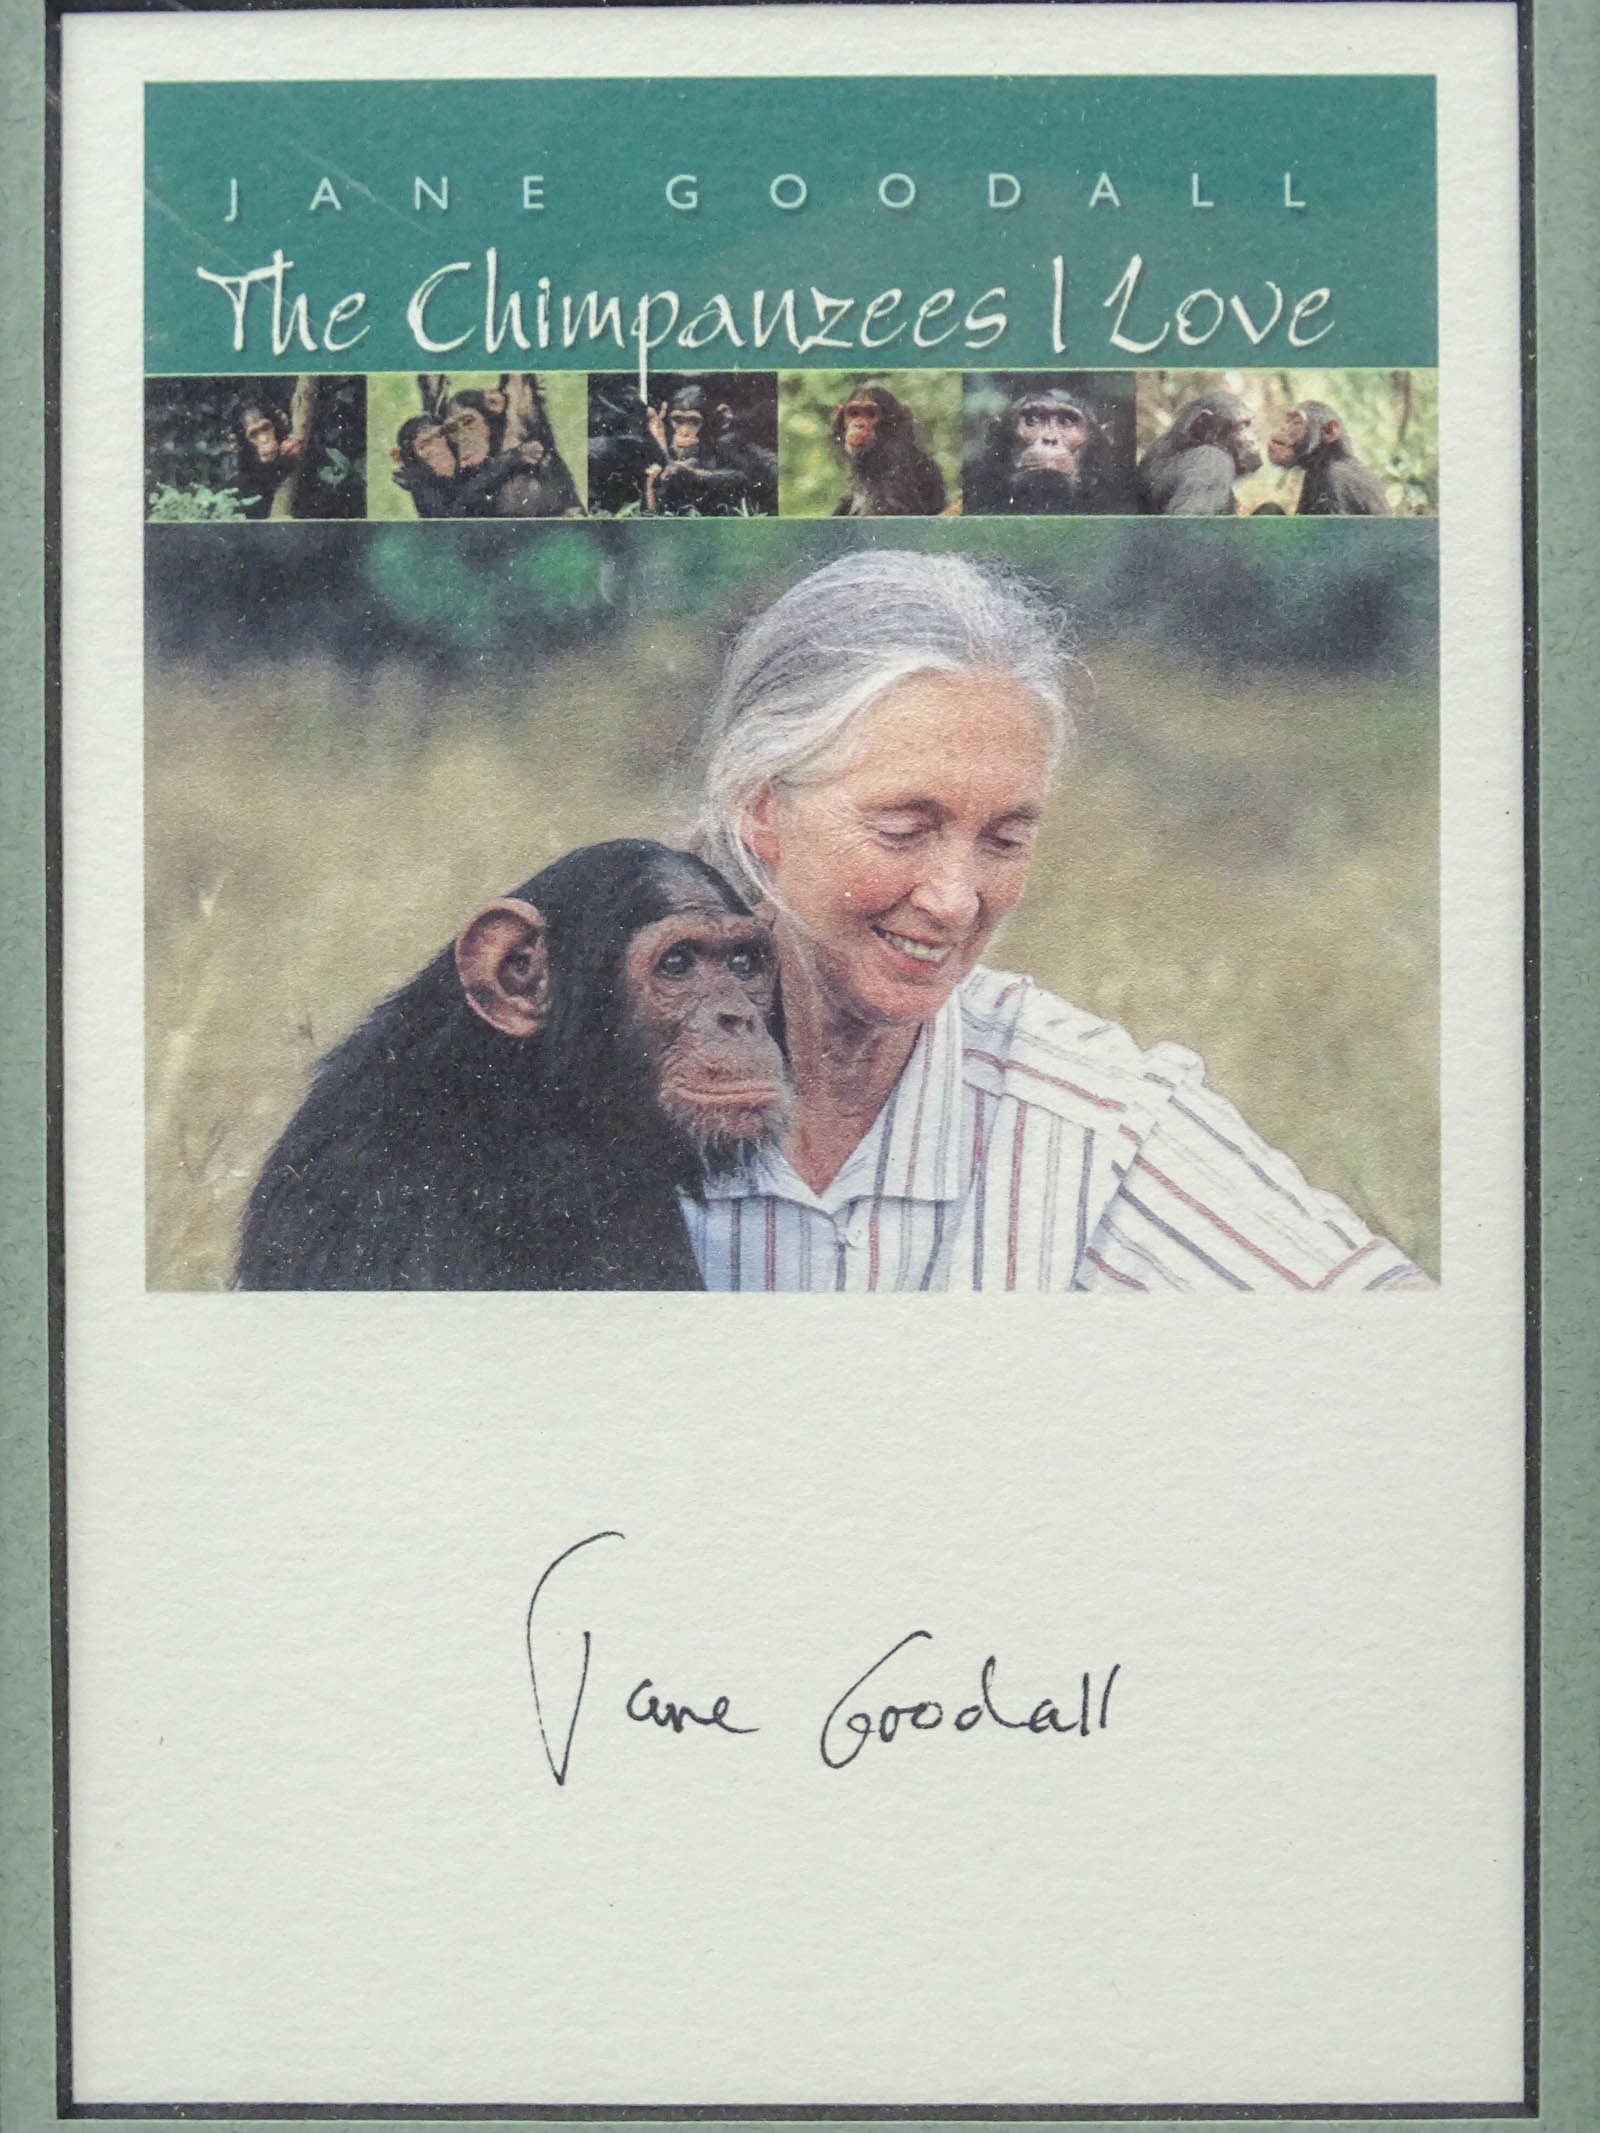 JANE GOODALL
The Chimpanzees I Love
Jane Goodall